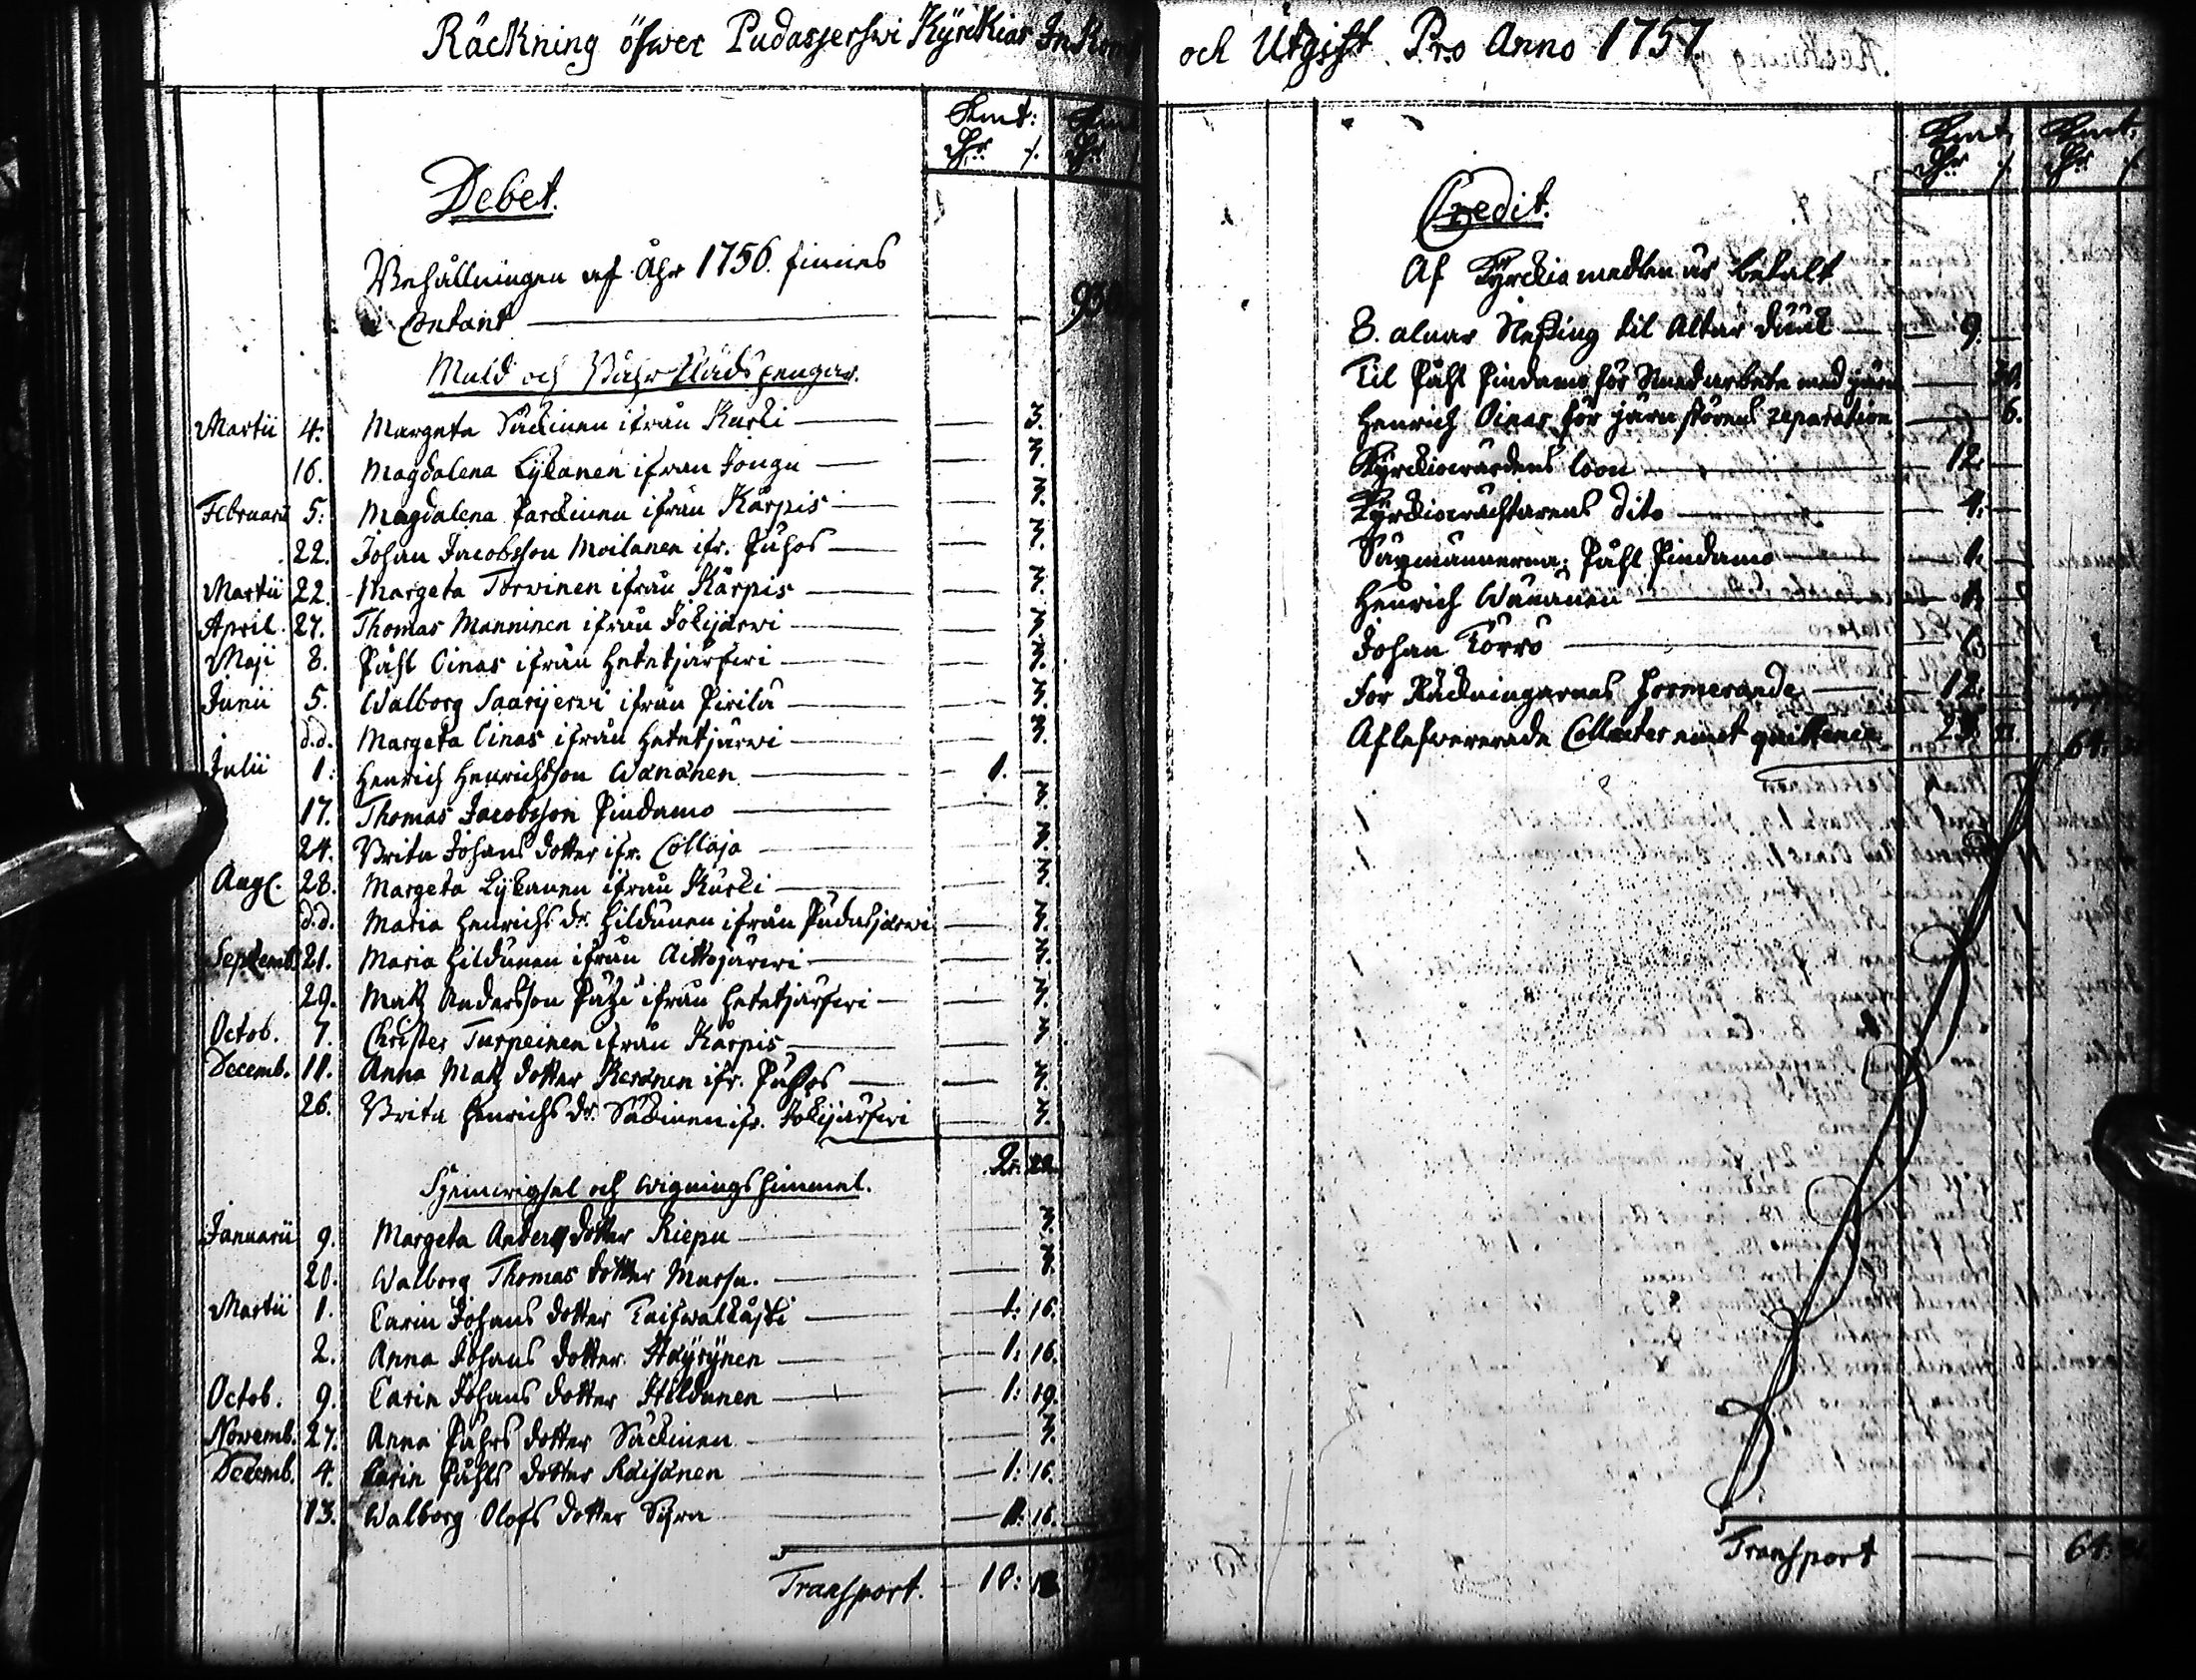 Räckning öfwer Pudasjerfwi Kyrckias Inkom
och Utgift. Pro Anno 1757.
Kmt: Kmt
Dhr /. Dhr
Debet.
Behållningen af Åhr 1756. finnes
Contant
Muld och Båhrklädspengar.
Martii 4. Margeta Säckinen ifrån Kurki — 3.
16. Magdalena Lykanen ifrån Jongu — 3.
Februarii 5: Magdalena Parckinen ifrån Kårpis — 3.
22. Johan Jacobsson Moilanen ifr. Puhos — 3.
Martii 22. Margeta Torvinen ifrån Kårpis — 3.
April. 27. Thomas Manninen ifrån Jokijärwi — 3.
Maji 8. Påhl Oinas ifrån Hetetjärfwi — 3.
Junii 5. Walborg Saarijerwi ifrån Pirilä — 3.
d.d. Margeta Oinas ifrån Hetetjärwi — 3.
Julii 1: Henrich Henrichsson Wänänen — 1. —
17. Thomas Jacobsson Pindamo — 3.
24. Brita Johans dotter ifr. Collaja — 3.
Aug. 28. Margeta Lykanen ifrån Kurki — 3.
d.d. Maria Henrichs dr. Hildunen ifrån Pudasjärwi — 3.
Septemb. 21. Maria Hildunen ifrån Aittojärwi — 3.
29. Matz Andersson ifrån Hetetjärfwi — 3.
Octob. 7. Christer Turpeinen ifrån Kårpis — 3.
Decemb. 11. Anna Matz dotter Keränen ifr. Puhos — 3.
26. Brita Henrichs dr. Säckinen ifr. Jokijärfwi — 3.
2: 22.
och Wigningshimmel.
Januarii 9. Margeta Anders dotter Riepu — 3.
20. Walborg Thomas dotter — 3.
Martii 1. Carin Johans dotter Taifwalkåski — 1: 16.
2. Anna Johans dotter Häyrynen — 1: 16.
Octob. 9. Carin Johans dotter Hildunen — 1: 19.
Novemb. 27. Anna Påhls dotter Säckinen — 3.
Decemb. 4. Carin Påhls dotter Räisänen — 1: 16.
13. Walborg Olofs dotter — 16.
Transport. — 10:
Kmt: Kmt:
Dhr /. Dhr /.
Credit.
Af Kyrckio medlen är betalt
8. alnar til Altar duuk — 9. —
Til Påhl Pindamo för Smed arbete med järn
Henrich Oinas för järn störens reparation — 6.
Kyrckiowärdens Löön — 12. —
Kyrckiowächtarens dito — 4. —
Påhl Pindamo — 1. —
Henrich Wänänen — 1. —
Johan Törrö — 1. —
för Räckningarnas formerande — 12. —
Aflefwererade Collecter emot quittence
64:
Transport — 64: